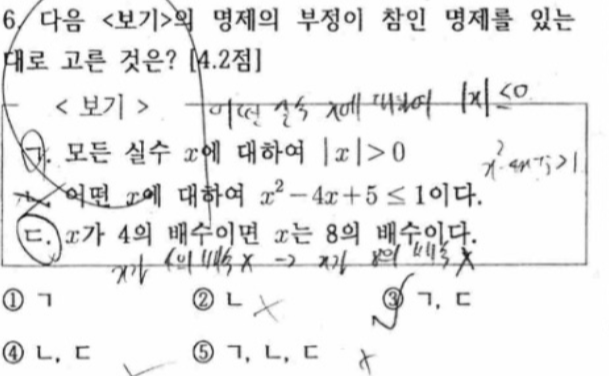 6. 다음 <보기>의 명제의 부정이 참인 명제를 있는
대로 고른 것은? [4.2점]
< 보기 > 어떤 실수 x에 대하여 |x|≤0
ㄱ. 모든 실수 x에 대하여 |x|>0
ㄴ. 어떤 x에 대하여 x²-4x+5≤1이다.
x²-4x+5>1
ㄷ. x가 4의 배수이면 x는 8의 배수이다.
x가 4의 배수 x → x가 8의 배수 x
① ㄱ ② ㄴ ③ ㄱ, ㄷ
④ ㄴ, ㄷ ⑤ ㄱ, ㄴ, ㄷ